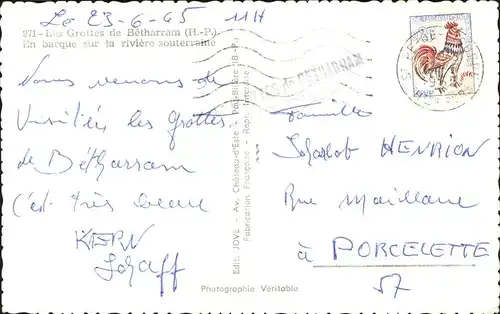 Le 23-6-65 11H
971 - Les Grottes de Bétharram (H.-P.)
En barque sur la rivière souterraine
Nous venons de
visitées les grottes
de Bétharram
c'est très beau
KIERN
Schaff
Edit. JOVE - Av. Château-d'Este - Pau-Billère (B.-P.)
Fabrication Française - Repr. Interdite
Photographie Véritable
GROTTES de BÉTHARRAM
Famille
HENRION
Rue Maillane
à PORCELETTE
57